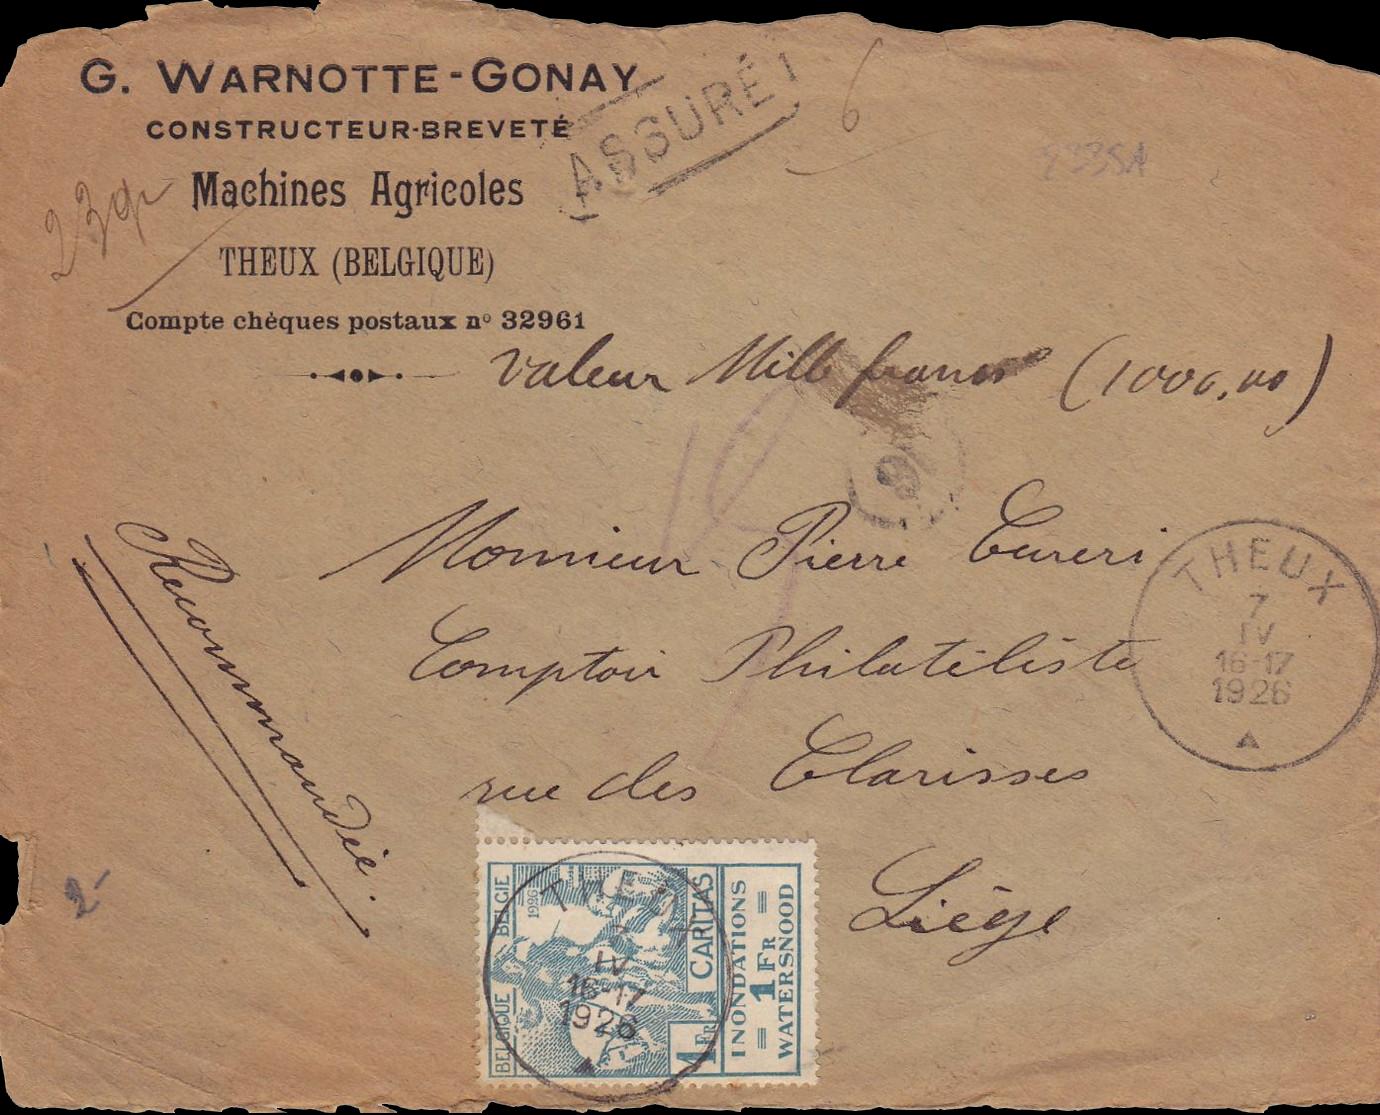 G. WARNOTTE-GONAY
CONSTRUCTEUR-BREVETÉ
ASSURÉ
6
Machines Agricoles
23 gr
THEUX (BELGIQUE)
Compte chèques postaux nº 32961
Valeur Mille francs (1000,00)
9
Recommandée
Monsieur Pierre
Comptoir Philatéliste
rue des Clarisses
Liège
THEUX
7
IV
16-17
1926
2-
BELGIQUE BELGIE
1926
CARITAS
1 FR
INONDATIONS
= 1 FR =
WATERSNOOD
THEUX
7
IV
16-17
1926